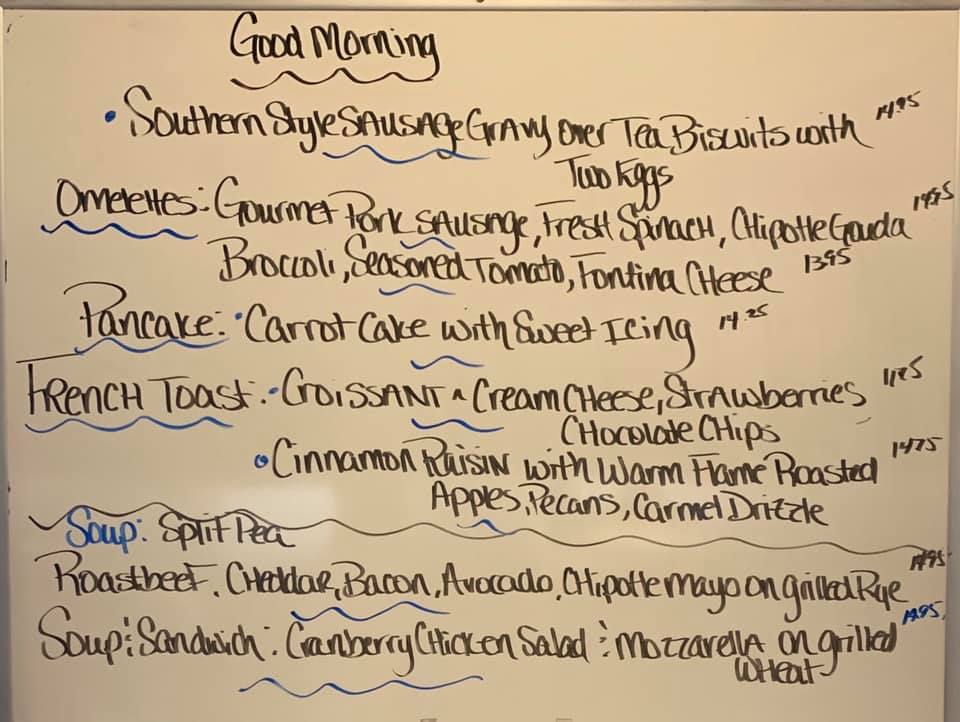 Good Morning
• Southern Style Sausage Gravy over Tea Biscuits with 14.95
Two Eggs
Omelettes: Gourmet Pork Sausage, Fresh Spinach, Chipotle Gouda 14.95
Broccoli, Seasoned Tomato, Fontina Cheese 13.95
Pancake: • Carrot Cake with Sweet Icing 14.25
French Toast: • Croissant ^ Cream Cheese, Strawberries
Chocolate Chips
• Cinnamon Raisin with Warm Flame Roasted 14.75
Apples, Pecans, Carmel Drizzle
Soup: Split Pea
Roastbeef, Cheddar, Bacon, Avocado, Chipotle mayo on grilled Rye 14.95
Soup : Sandwich : Cranberry Chicken Salad : Mozzarella on grilled 14.95
Wheat